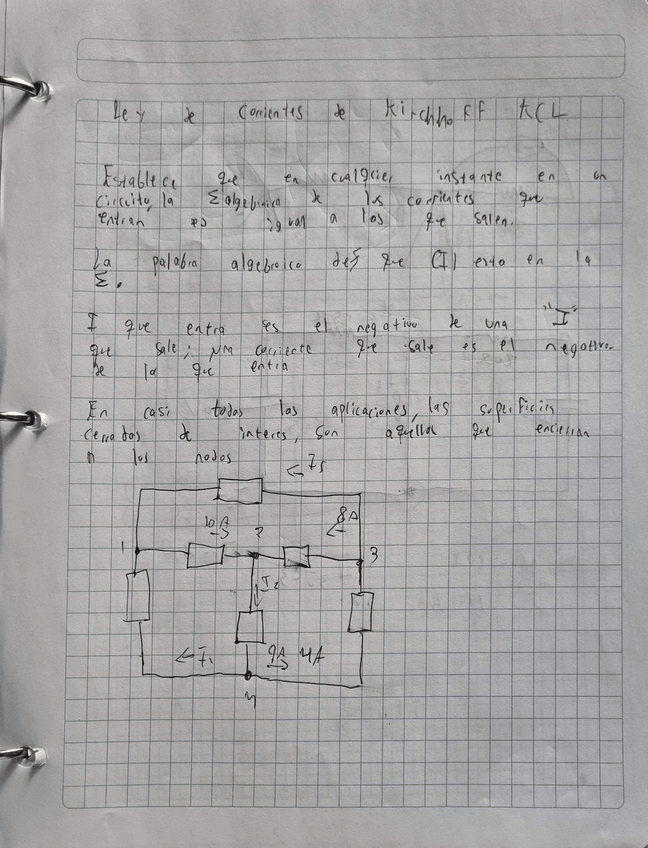 Ley de Corrientes de KirchhoFF KCL
Establece que en cualquier instante en un
circuito, la Σ algebraica de las corrientes que
entran es igual a las que salen.
La palabra algebraico def que (I) esto en la
Σ.
I que entra es el negativo de una "I"
que sale; una corriente que sale es el negativo
de la que entra
En casi todas las aplicaciones, las superficies
cerradas de interes, son aquellas que encierran
a los nodos
←
10A → 2 8A ←
1 3
I2
← I1 9A → 4A
4